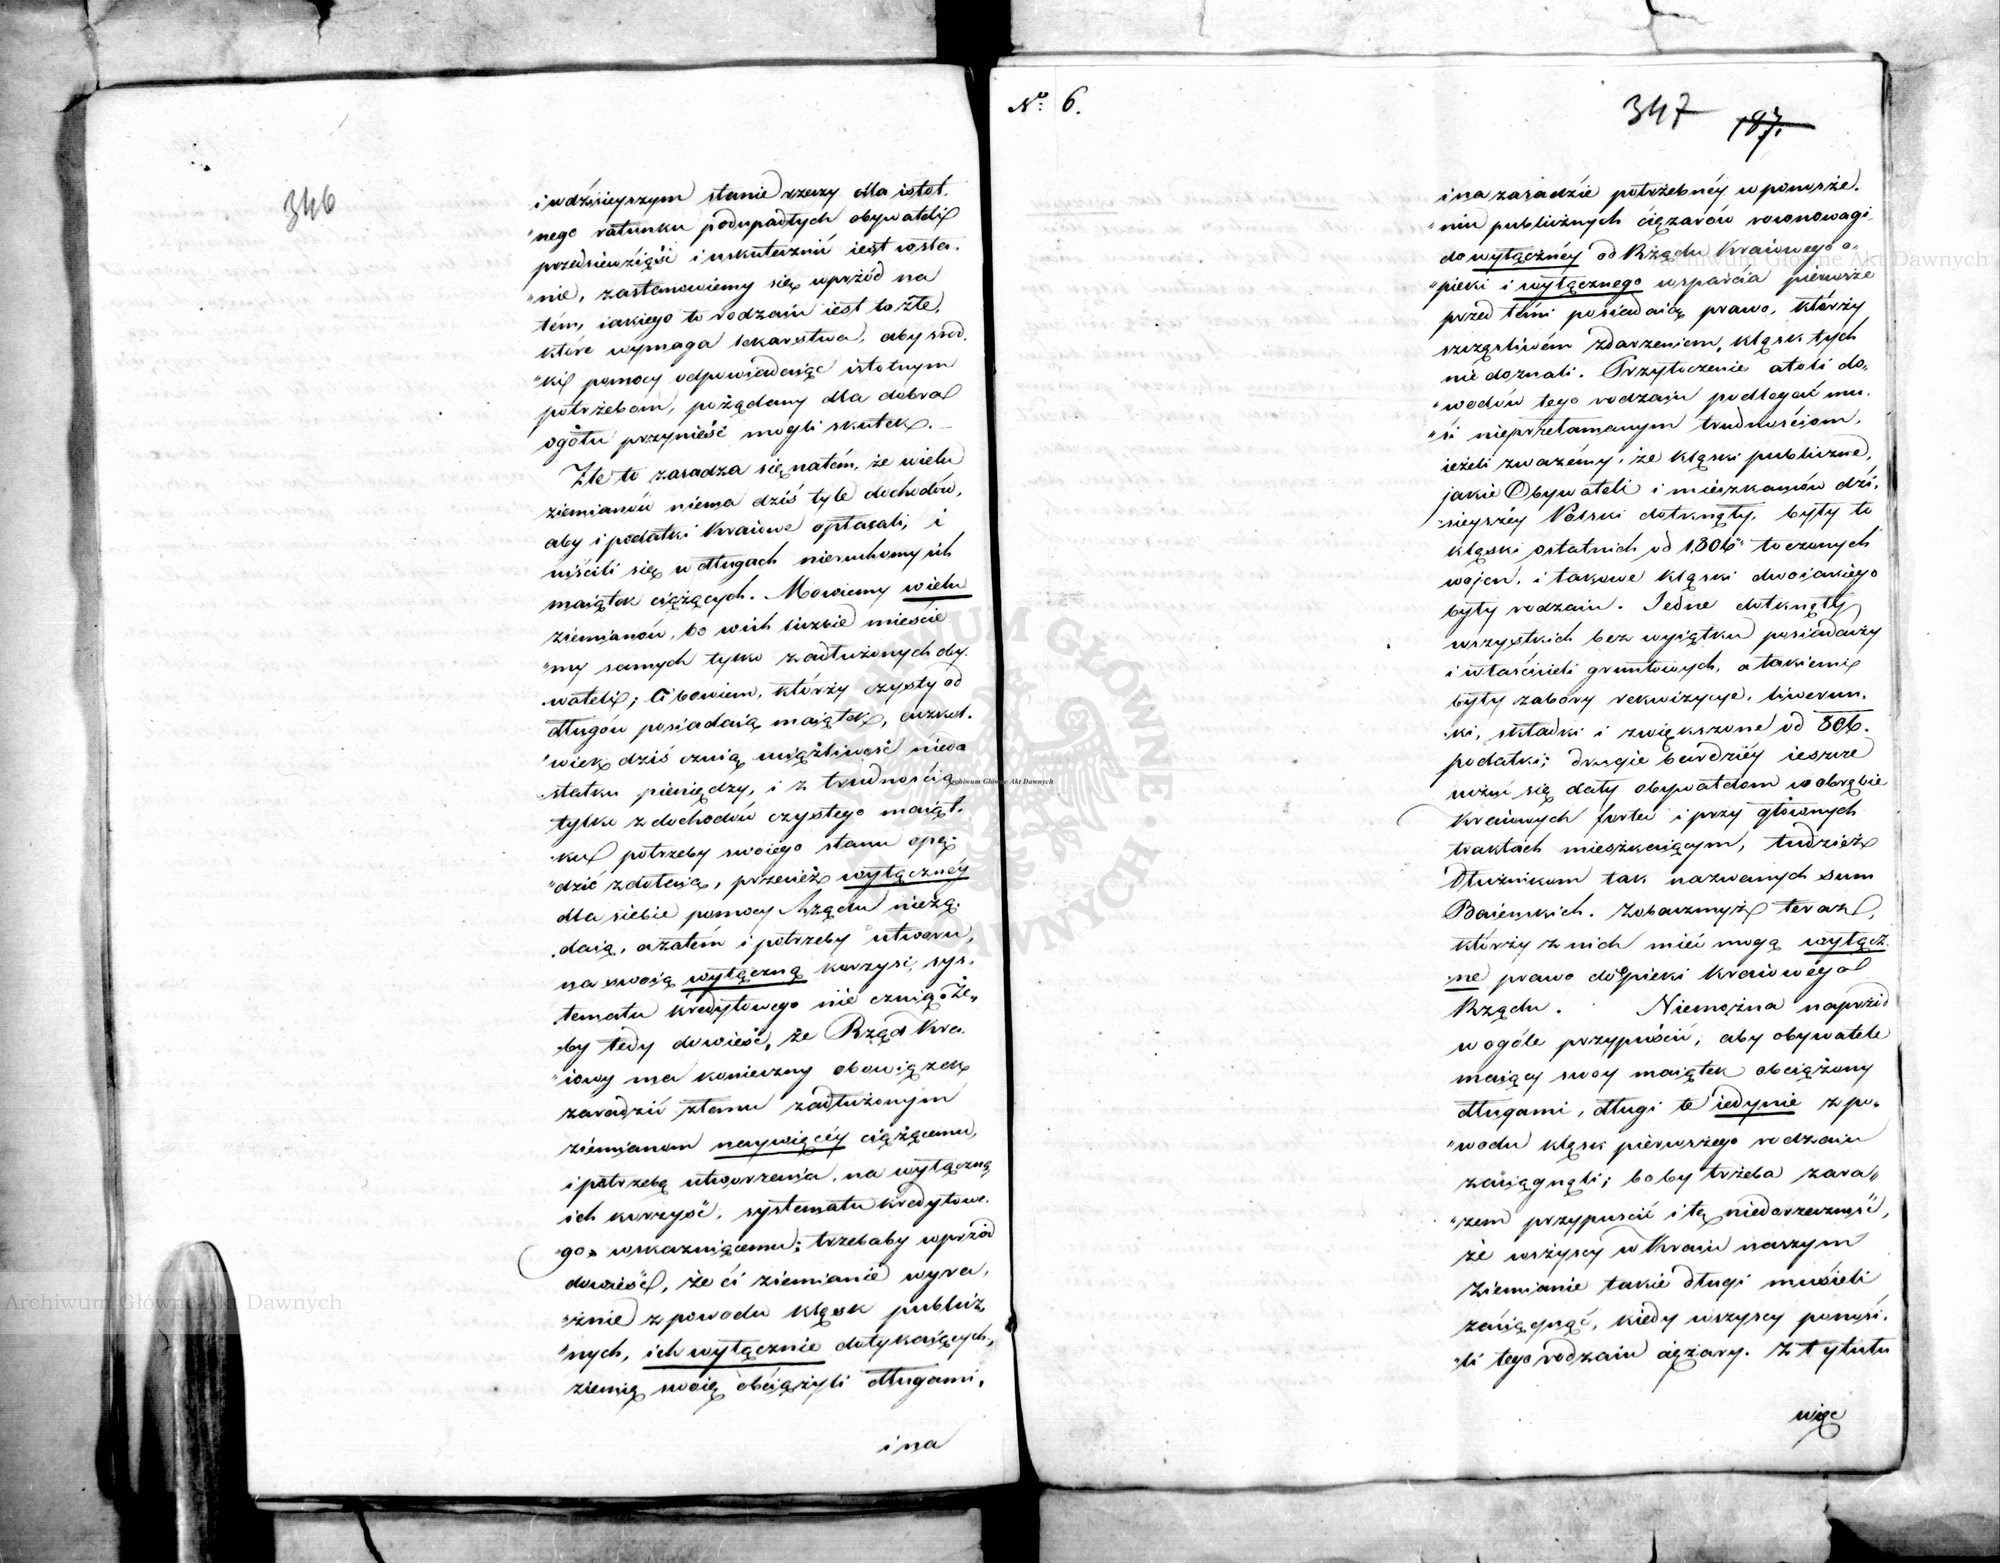 346
i w dzisieyszym stanie rzeczy dla istot.
"nego ratunku podupadłych obywateli
przedsiewziąść i uskutecznić iest wsta.
"nie, zastanowiemy się wprzód na
tém, iakiego to rodzaiu iest to złe,
które wymaga lekarstwa, aby środ.
"ki pomocy odpowiadaiąc istotnym
potrzebom, pożądany dla dobra
ogółu przynieść mogli skutek. _
Złe to zasadza się na tém, że wielu
ziemianów niema dziś tyle dochodów,
aby i podatki Kraiowe opłacali, i
uiścili się w długach nieruchomy ich
maiątek ciążących. Mowiemy wielu
ziemianów, bo w ich liczbie mieście
"my samych tylko zadłużonych oby.
wateli; Ci bowiem, którzy czysty od
długów posiadaią maiątek, aczkol.
"wiek dziś czuią uciążliwość niedo
statku pieniędzy, i z trudnością
tylko z dochodów czystego maiąt.
ku potrzeby swoiego stanu opę.
"dzić zdołaią, przecież wyłącznéy
dla siebie pomocy Rządu nieżą.
daią, a zatém i potrzeby utworu,
na swoią wyłączną korzyść, sys.
tematu kredytowego nie czuią. Że„
by tedy dowieść, że Rząd Kra.
"iowy ma konieczny obowiązek
zaradzić złemu zadłużonym
ziemianom naywięcéy ciążącemu,
i potrzebą utworzenia, na wyłączną
ich korzyść, systematu kredytowe.
go, wskazuiącemu; trzebaby wprzód
dowieść, że ci ziemianie wyra,
"źnie z powodu klęsk publicz
"nych, ich wyłącznie dotykaiących,
ziemię swoię obciążyli długami,
i na
No. 6.
347
187.
i na zasadzie potrzebnéy w ponosze.
"niu publicznych ciężarów rownowagi
do wyłącznéy od Rządu Kraiowego o.
"pieki i wyłącznego wsparcia pierwsze
przed témi posiadaią prawo, którzy
szczęśliwém zdarzeniem, klęsk tych
nie doznali. Przytoczenie atoli do„
"wodów tego rodzaiu podlegać mu.
"si nieprzełamanym trudnościom,
ieżeli zważémy, że klęski publiczne,
jakie Obywateli i mieszkańców dzi.
"sieyszéy Polski dotknęły, były to
klęski ostatnich od 1806 toczonych
wojen, i takowe klęski dwoiakiego
były rodzaiu. Jedne dotknęły
wszystkich bez wyiątku posiadaczy
i właścicieli gruntowych, a takiemi
były zabory rekwizycye, liwerun.
ki, składki i zwiększone od 806.
podatki; drugie bardziéy ieszcze
uczuć się dały obywatelom w obrębie
Kraiowych fortec i przy głownych
traktach mieszkaiącym, tudzież
Dłużnikom tak nazwanych sum
Baionskich. Zobaczmyż teraz,
którzy z nich mieć mogą wyłącz.
ne prawo do Opieki Kraiowego
Rządu. Niemożna naprzód
w ogóle przypuścić, aby obywatele
maiący swoy maiątek obciążony
długami, długi te iedynie z po.
"wodu klęsk pierwszego rodzaiu
zaciągnęli; bo by trzeba zara„
"zem przypuścić i tę niedorzeczność,
że wszyscy w Kraiu naszym
Ziemianie takie długi musieli
zaciągnąć, kiedy wszyscy ponosi.
"li tego rodzaiu ciężary. Z tytułu
więc
Archiwum Główne Akt Dawnych
Archiwum Główne Akt Dawnych
Archiwum Główne Akt Dawnych
ARCHIWUM GŁÓWNE AKT DAWNYCH